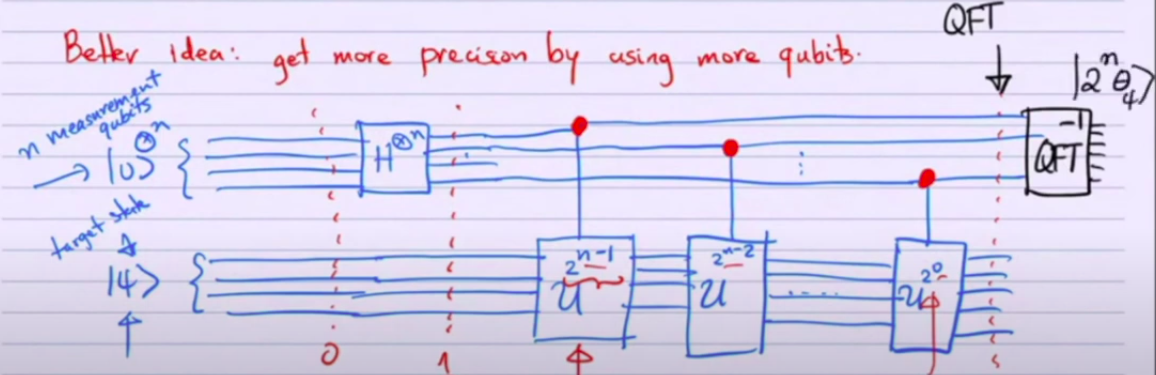 QFT
Better idea: get more precision by using more qubits.
|2ⁿ θ₄⟩
n measurement qubits
|0⟩^⊗n
H^⊗n
QFT⁻¹
target state
|4⟩
U^2^n-1
U^2^n-2
.....
U^2^0
0
1